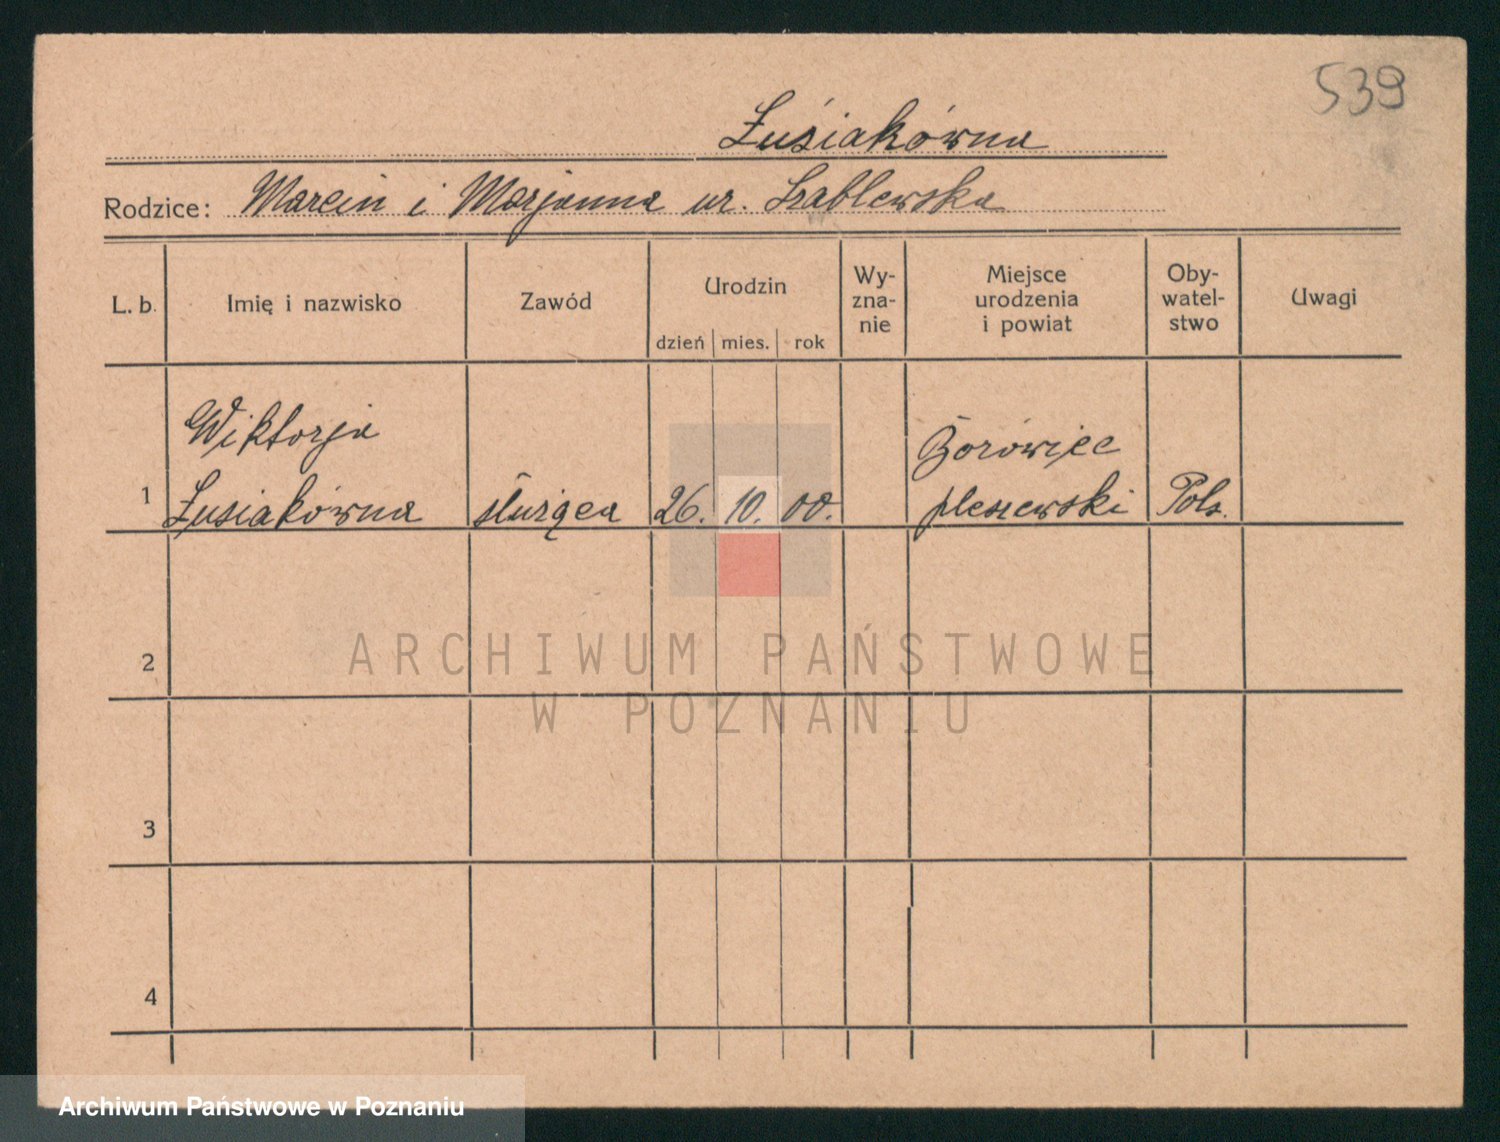 539
Łuśiakówna
Rodzice: Marcin i Marjanna ur. Szablewska
L. b.
Imię i nazwisko
Zawód
Urodzin
dzień mies. rok
Wy-
zna-
nie
Miejsce
urodzenia
i powiat
Oby-
watel-
stwo
Uwagi
1
Wiktorja
Łusiakówna
służąca
26. 10. 00.
Borówiec
pleszewski
Pols.
2
3
4
ARCHIWUM PAŃSTWOWE
W POZNANIU
Archiwum Państwowe w Poznaniu